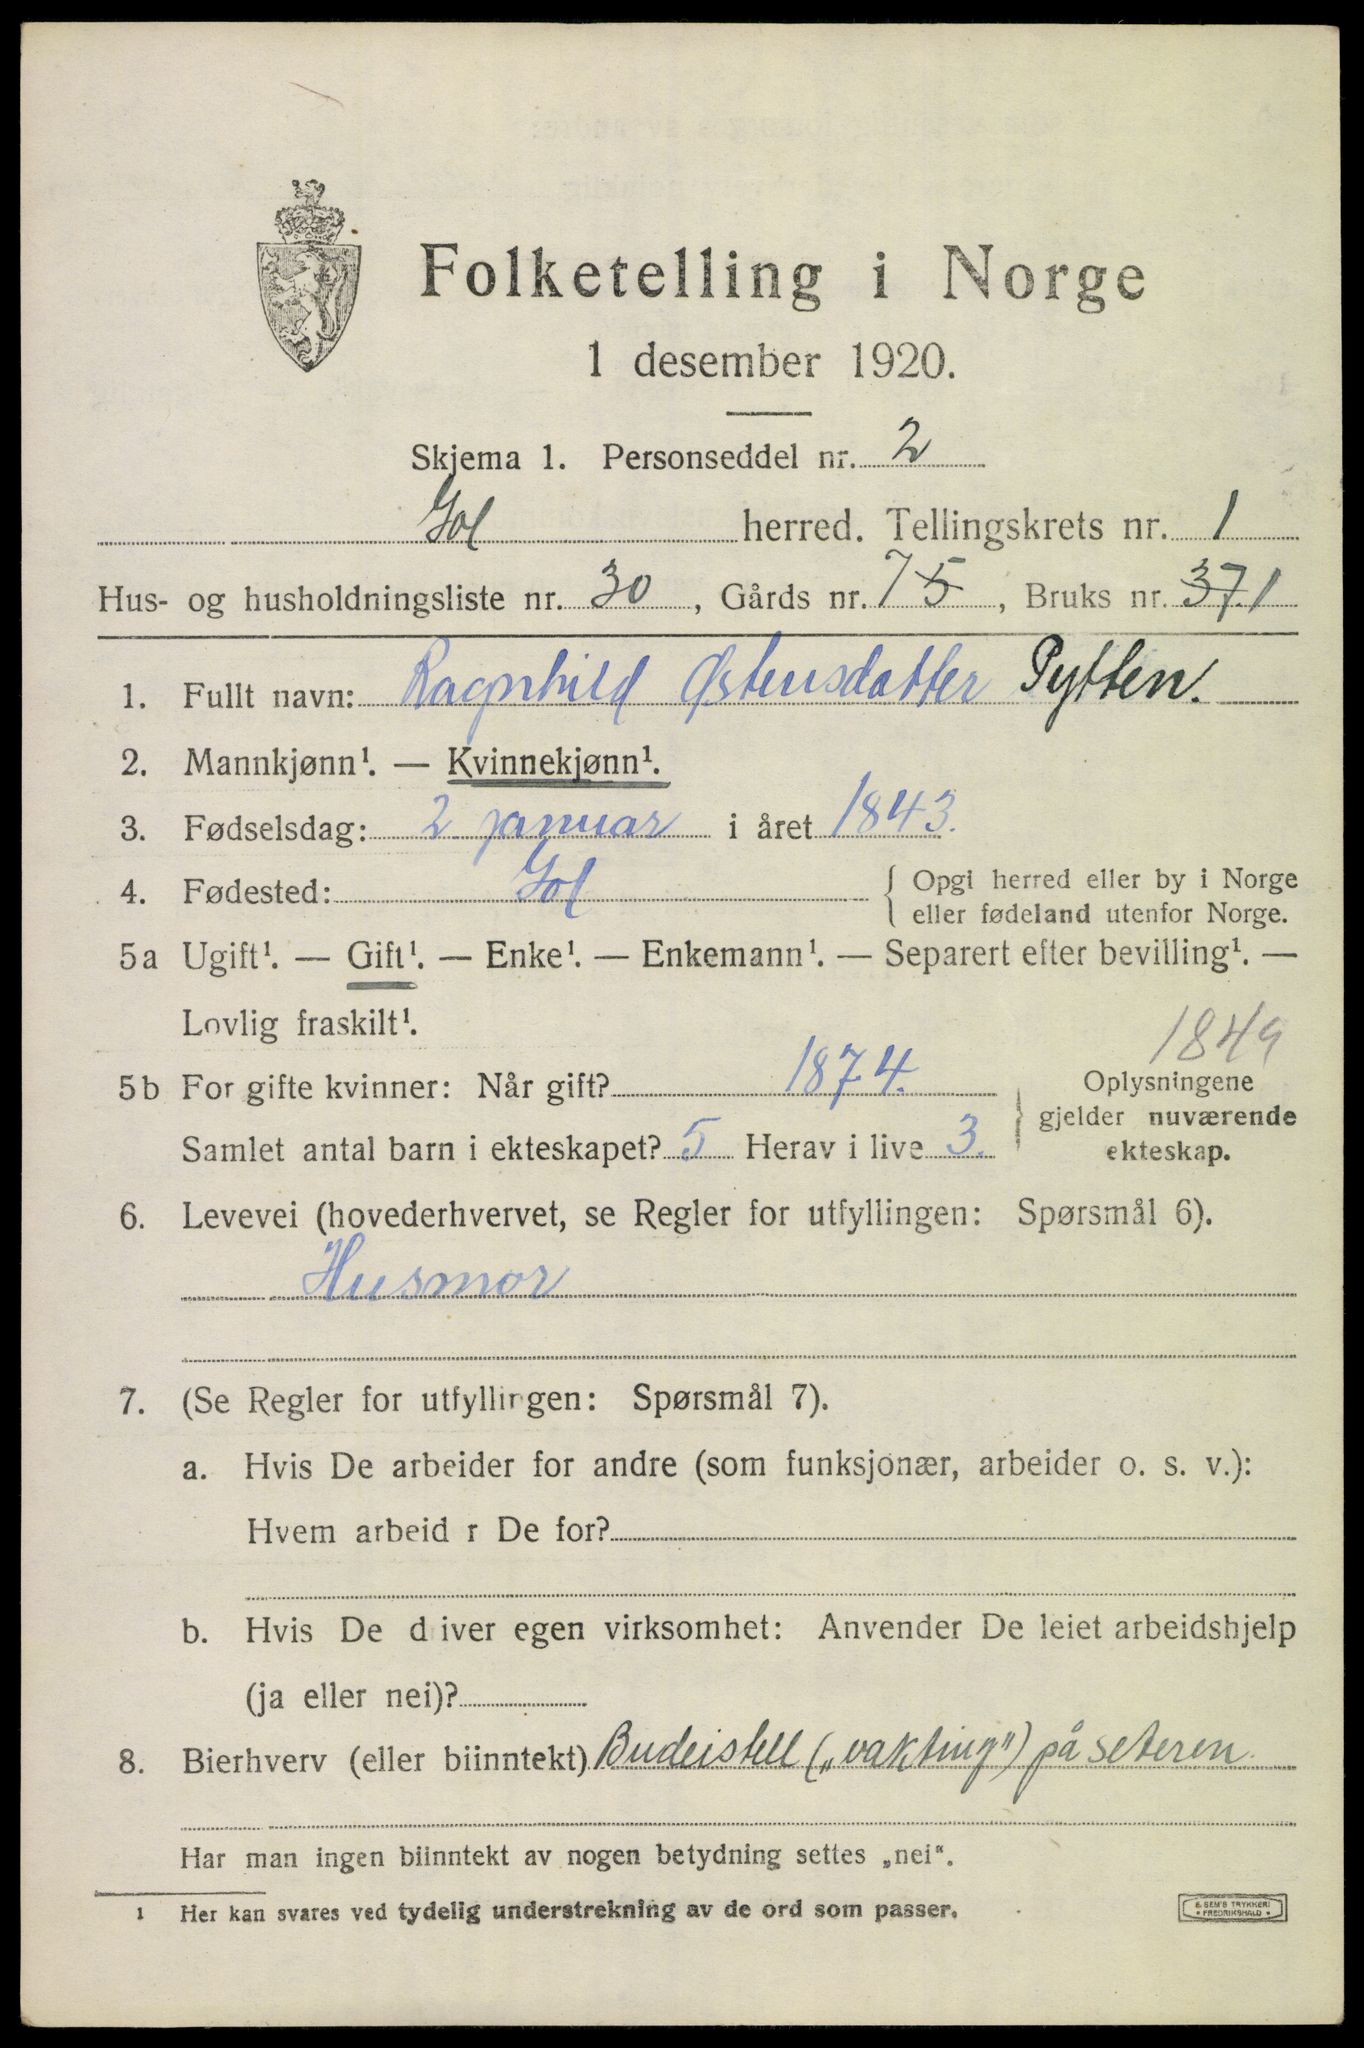 Folketelling i Norge
1 desember 1920.
Skjema 1. Personseddel nr. 2
Gol herred. Tellingskrets nr. 1
Hus- og husholdningsliste nr. 30, Gårds nr. 75, Bruks nr. 37.1
1. Fullt navn: Ragnhild Østensdatter Pytten.
2. Mannkjønn¹. — Kvinnekjønn¹.
3. Fødselsdag: 2 januar i året 1843.
4. Fødested: Gol { Opgi herred eller by i Norge
eller fødeland utenfor Norge.
5a Ugift¹. — Gift¹. — Enke¹. — Enkemann¹. — Separert efter bevilling¹. —
Lovlig fraskilt¹.
1849
5b For gifte kvinner: Når gift? 1874. Oplysningene
gjelder nuværende
Samlet antal barn i ekteskapet? 5 Herav i live 3. ekteskap.
6. Levevei (hovederhvervet, se Regler for utfyllingen: Spørsmål 6).
Husmor
7. (Se Regler for utfyllingen: Spørsmål 7).
a. Hvis De arbeider for andre (som funksjonær, arbeider o. s. v.):
Hvem arbeid r De for?
b. Hvis De driver egen virksomhet: Anvender De leiet arbeidshjelp
(ja eller nei)?
8. Bierhverv (eller biinntekt) Budeistell („vakting") på seteren.
Har man ingen biinntekt av nogen betydning settes „nei“.
1 Her kan svares ved tydelig understrekning av de ord som passer.
E. SEM'S TRYKKERI
• FREDRIKSHALD •